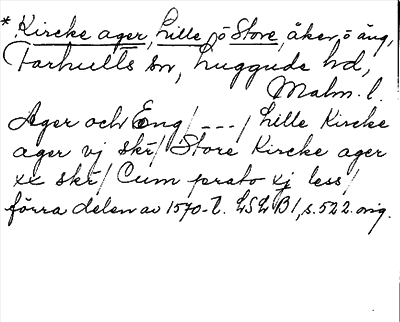 * Kircke ager, Lille o Store, åker o äng,
Farhults sn, Luggude hd,
Malm. l.
Ager och Eng/---/ Lille Kircke
ager vj skr/ Store Kircke ager
xx skr/ Cum prato xj less/
förra delen av 1570-t. LSLB1, s. 522. orig.